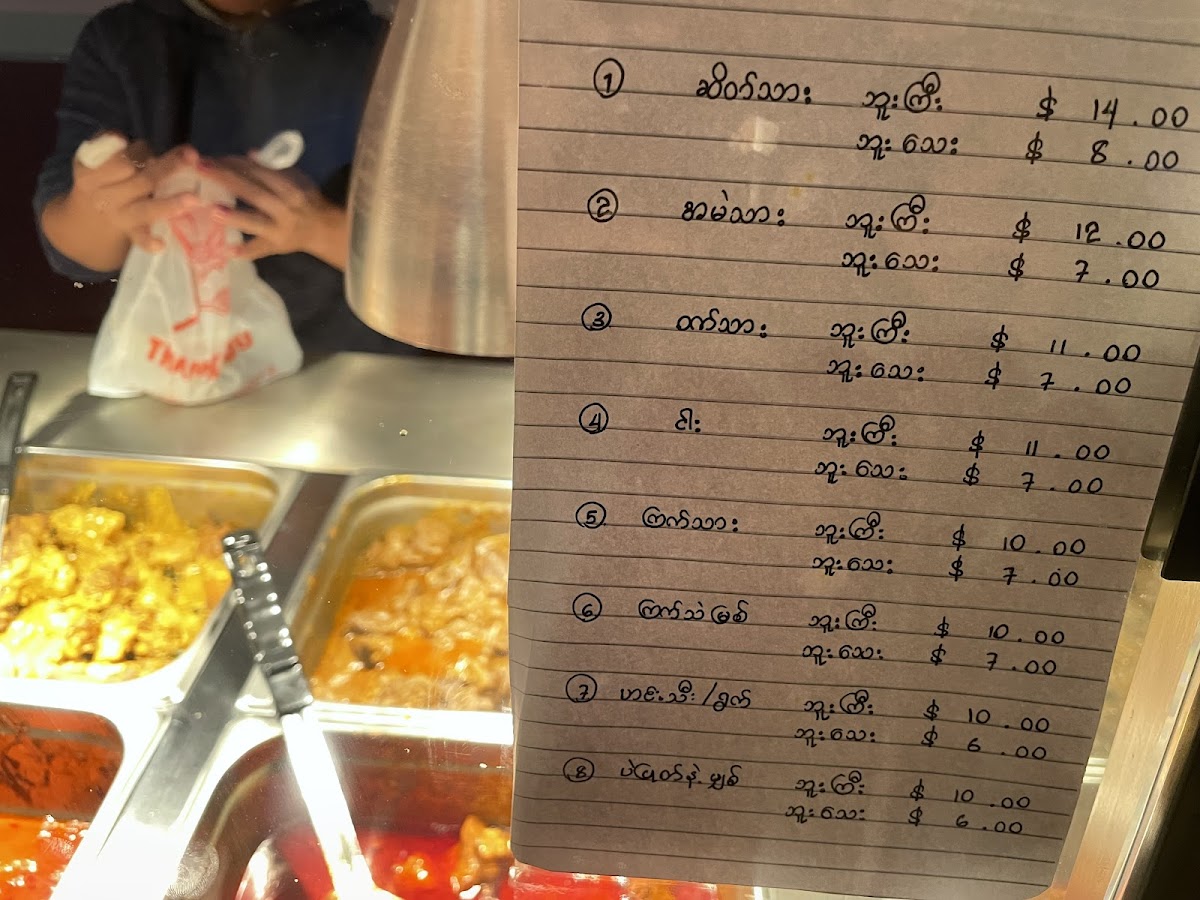 THANK YOU
① ဆိတ်သား ဘူးကြီး $ 14.00
ဘူးသေး $ 8.00
② အမဲသား ဘူးကြီး $ 12.00
ဘူးသေး $ 7.00
③ ဝက်သား ဘူးကြီး $ 11.00
ဘူးသေး $ 7.00
④ ငါး ဘူးကြီး $ 11.00
ဘူးသေး $ 7.00
⑤ ကြက်သား ဘူးကြီး $ 10.00
ဘူးသေး $ 7.00
⑥ ကြက်သဲမြစ် ဘူးကြီး $ 10.00
ဘူးသေး $ 7.00
⑦ ဟင်းသီး/ရွက် ဘူးကြီး $ 10.00
ဘူးသေး $ 6.00
⑧ ဘူးကြီး $ 10.00
ဘူးသေး $ 6.00